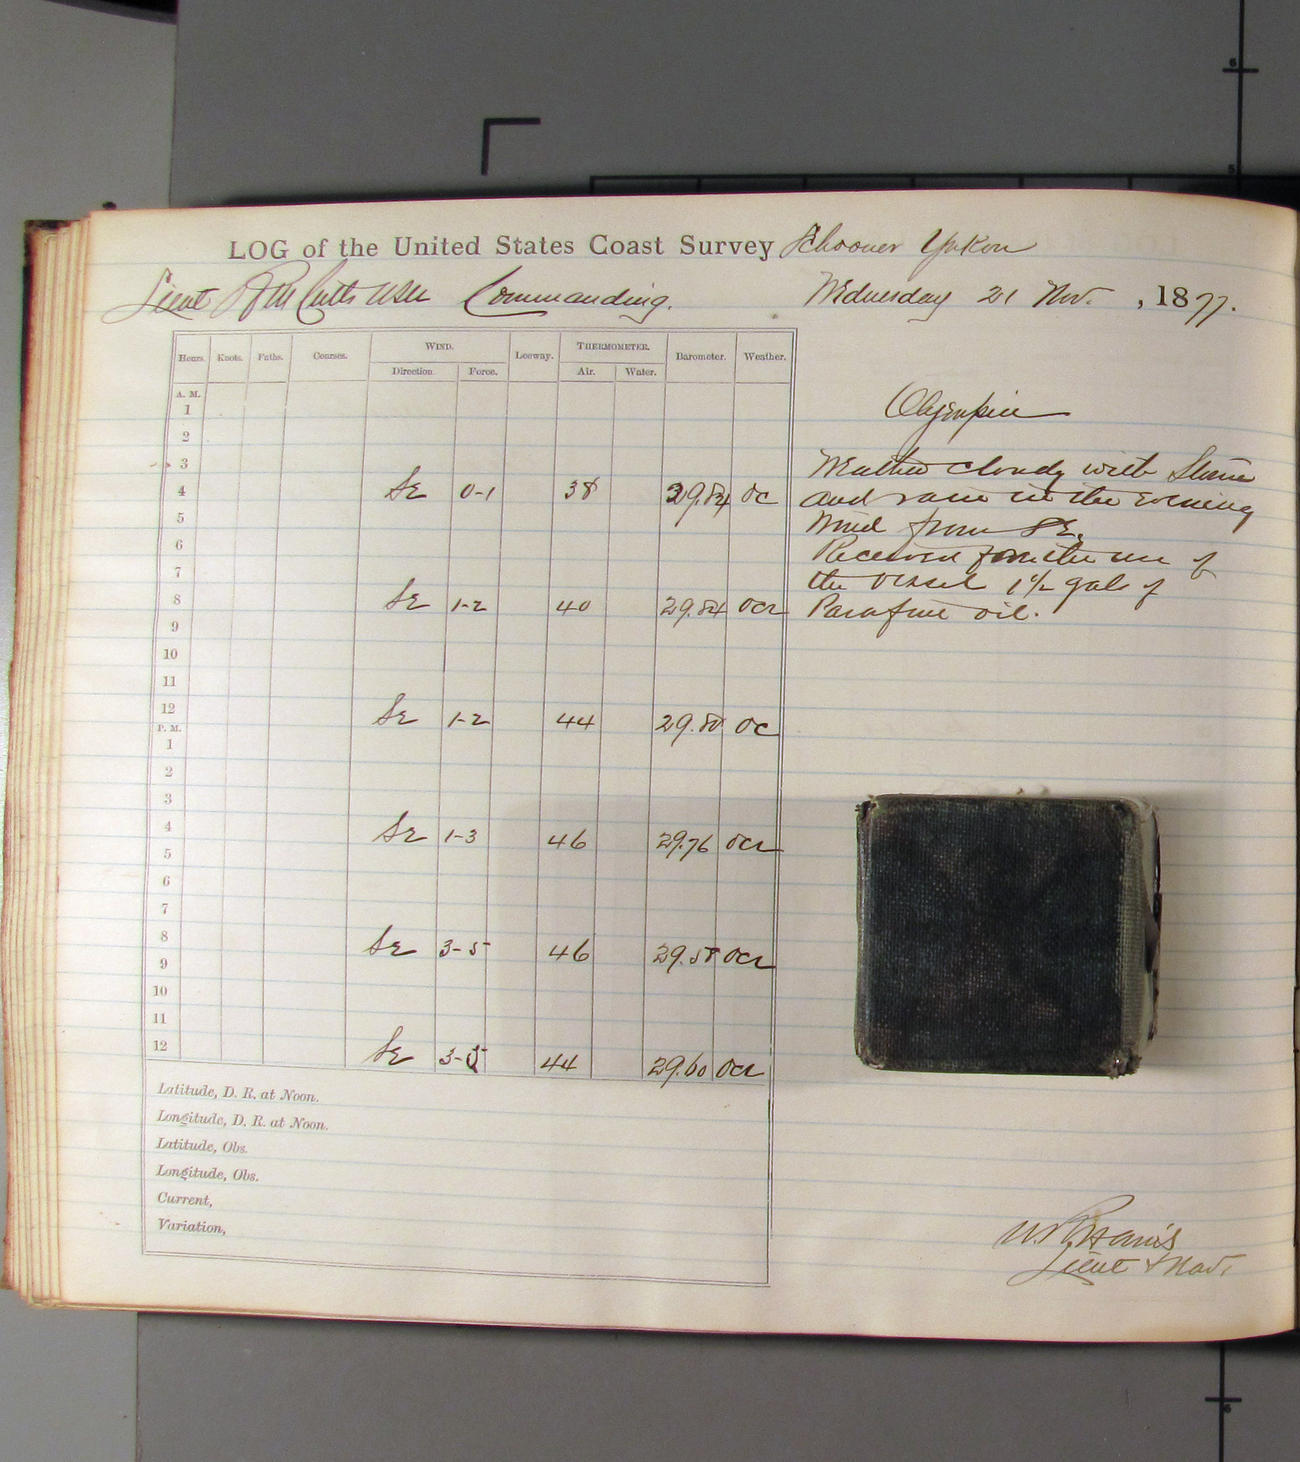 LOG of the United States Coast Survey Schooner Yukon
Lieut R M Cutts USN Commanding. Wednesday 21 Nov. , 1877.
Hours. Knots. Faths. Courses. WIND. Leeway. THERMOMETER. Barometer. Weather.
Direction. Force. Air. Water.
A. M.
1
2
3
4 SE 0-1 38 29.84 oc
5
6
7
8 SE 1-2 40 29.84 ocr
9
10
11
12 SE 1-2 44 29.80 oc
P. M.
1
2
3
4 SE 1-3 46 29.76 ocr
5
6
7
8 SE 3-5 46 29.58 ocr
9
10
11
12 SE 3-5 44 29.60 ocr
Latitude, D. R. at Noon.
Longitude, D. R. at Noon.
Latitude, Obs.
Longitude, Obs.
Current,
Variation,
Weather cloudy with
and rain in the evening
Wind from SE.
Received for the use of
the vessel 1 1/2 gals of
Parafine oil.
Lieut & Nav.
5
6